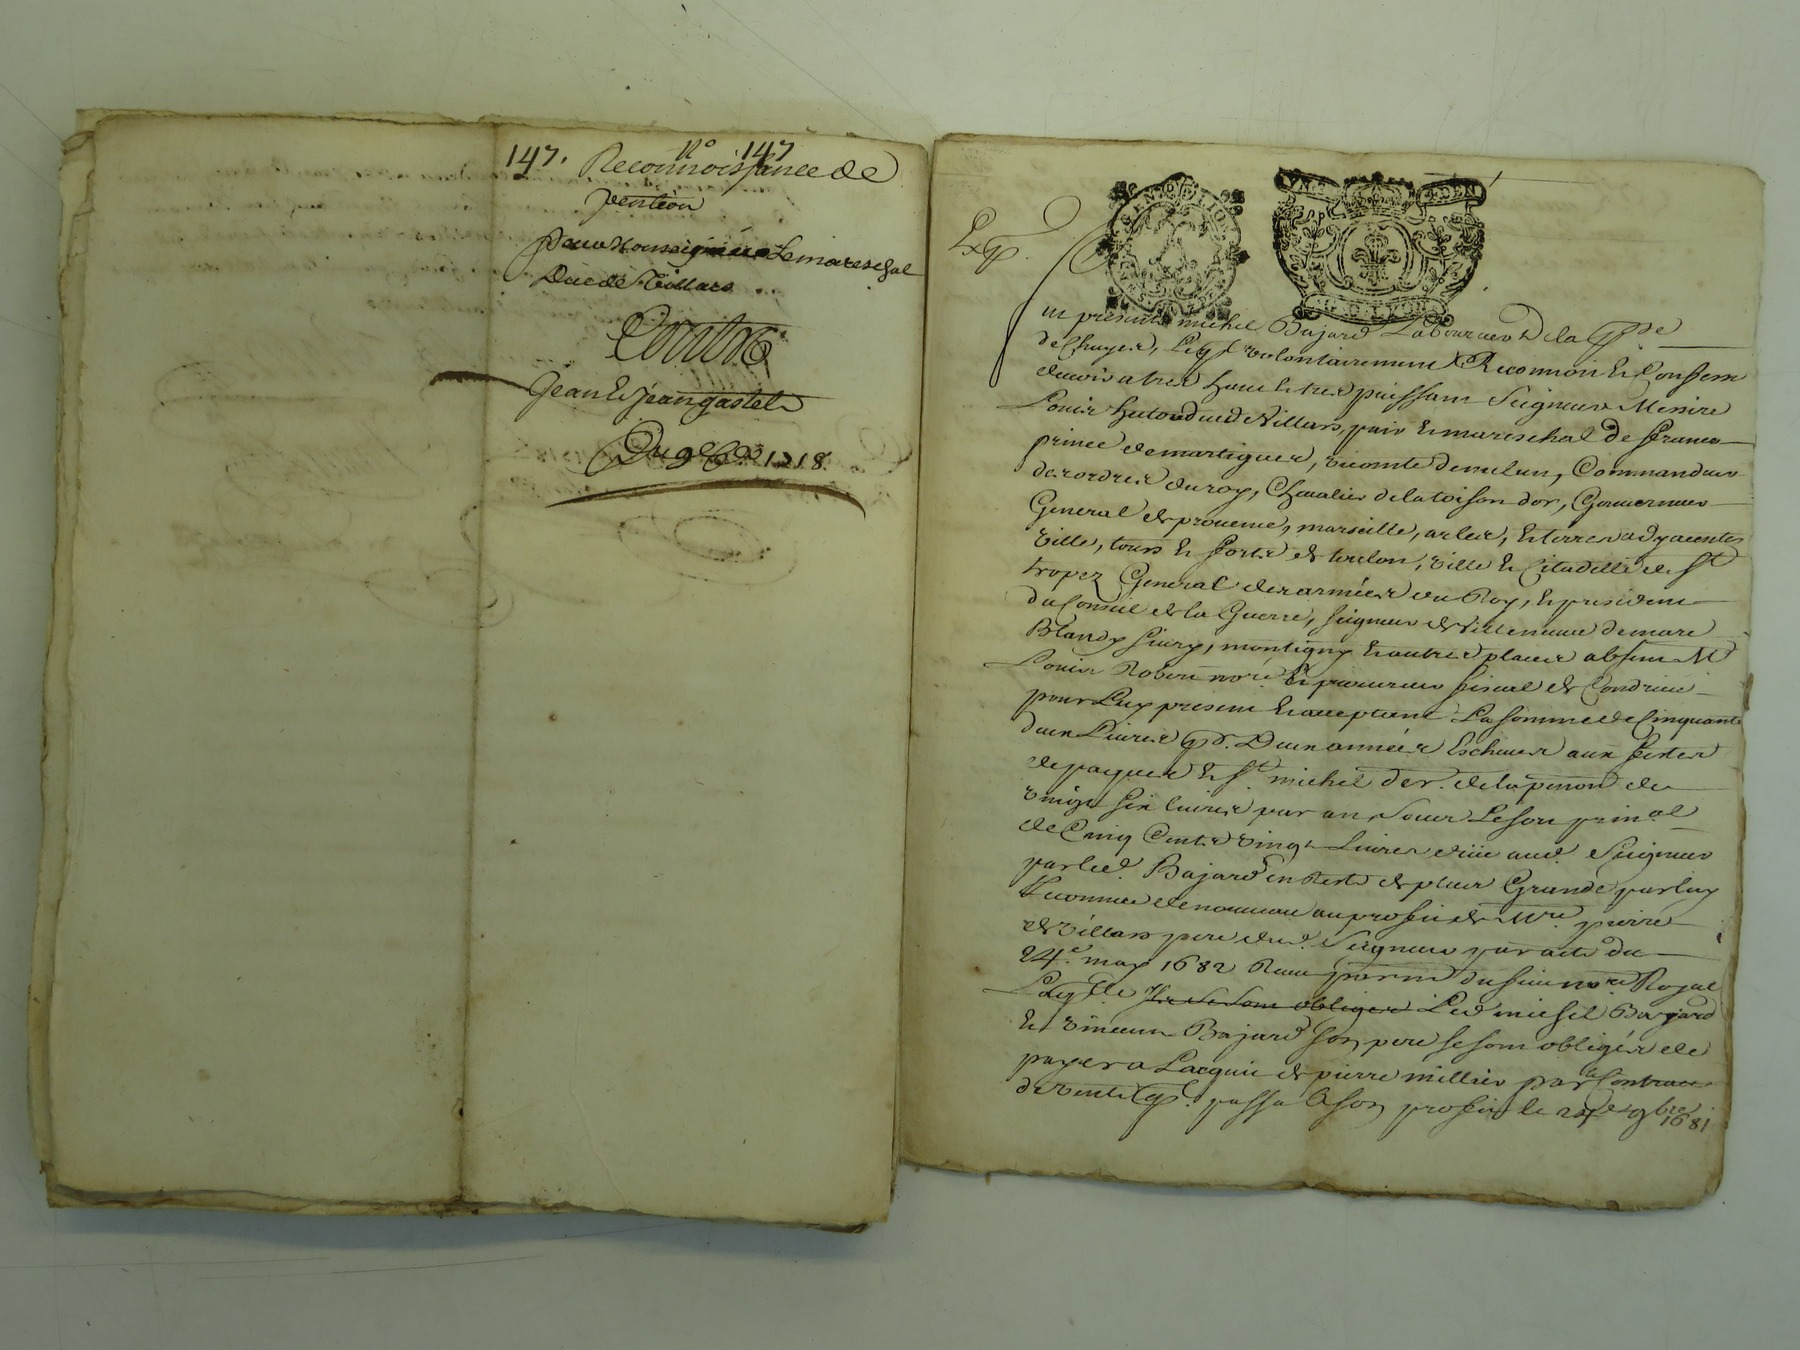 N° 147
147. Reconnoissance de
pention
pour Monseigneur Le mareschal
Duc de Villars
Contre
Jean & Jean gastel
Du 9e 1718.
Exp.
GEN DE LION
UN DEN
G DE LION
fut present michel Bajard Laboureur de la psse
de Chuyer, Leql volontairement Reconnoit et Confesse
devoir a tres haut et tres puissant Seigneur Messire
Louis hector duc de Villars, pair et mareschal de france
prince de martigues, vicomte de melun, Commandeur
des ordres du roy, Chevalier de la toison dor, Gouverneur
General de provence, marseille, arles, et terres adjacentes
ville, tours et forts de toulon, ville et Citadelle de St
tropez General des armées du Roy, et president
du Conseil de la Guerre, seigneur de villeneuve demare
Blandy sivry, montigny et autres places absent Me
Louis Robert nore et procureur fiscal de Condrieu
pour Luy present et acceptant La somme de Cinquante
deux Livres pr. Deux années Escheues aux festes
de paques et St. michel der. de la penon de
vingt six livres par an sous Le sort prinal
de Cinq Cents vingt Livres due aud. Seigneur
par led. Bajard en Reste de plus Grande par luy
Reconnue de nouveau au profit de Mre. pierre
de Villars pere dud. Seigneur par acte du
24e. may 1682 Receu par nore Royal
Laqlle Ils se sont obligés Led michel Bajard
et vincent Bajard son pere se sont obligés de
payer a Lacquit de pierre millier par le Contract
de vente passé a son profit le 9bre 1681